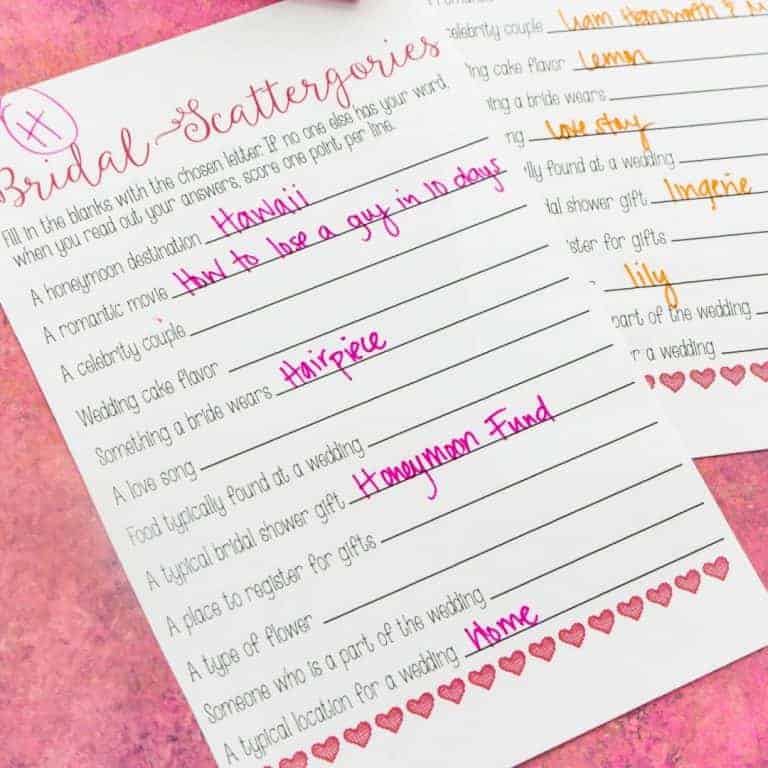 H
Bridal Scattergories
Fill in the blanks with the chosen letter. If no one else has your word,
when you read out your answers, score one point per line.
A honeymoon destination Hawaii
A romantic movie How to lose a guy in 10 days
A celebrity couple
Wedding cake flavor
Something a bride wears Hairpiece
A love song
Food typically found at a wedding
A typical bridal shower gift Honeymoon Fund
A place to register for gifts
A type of flower
Someone who is a part of the wedding
A typical location for a wedding Home
celebrity couple Liam Hemsworth & M
cake flavor Lemon
a bride wears
love story
found at a wedding
shower gift lingerie
for gifts
lily
part of the wedding
a wedding